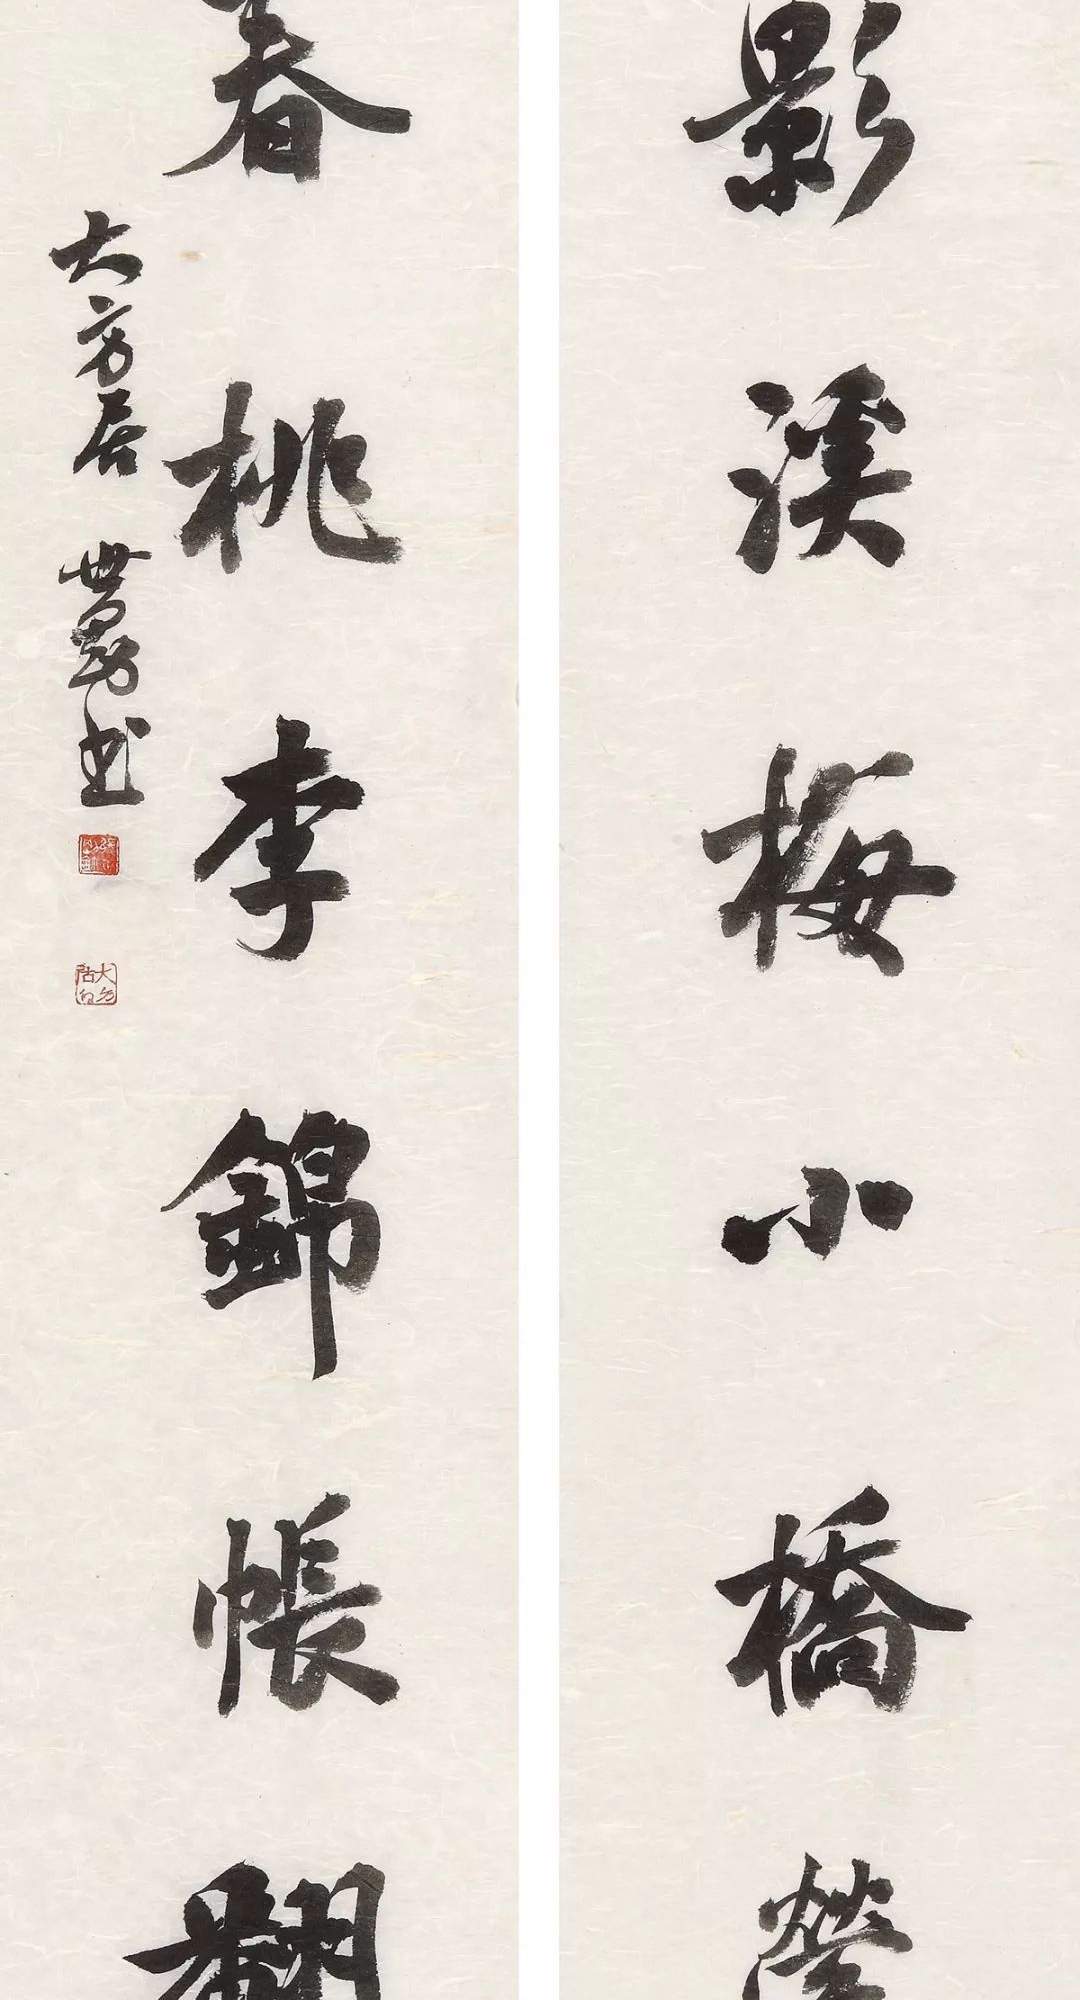 影溪梅小橋螢
春桃李錦帳翻
大方居世勣書
大方居